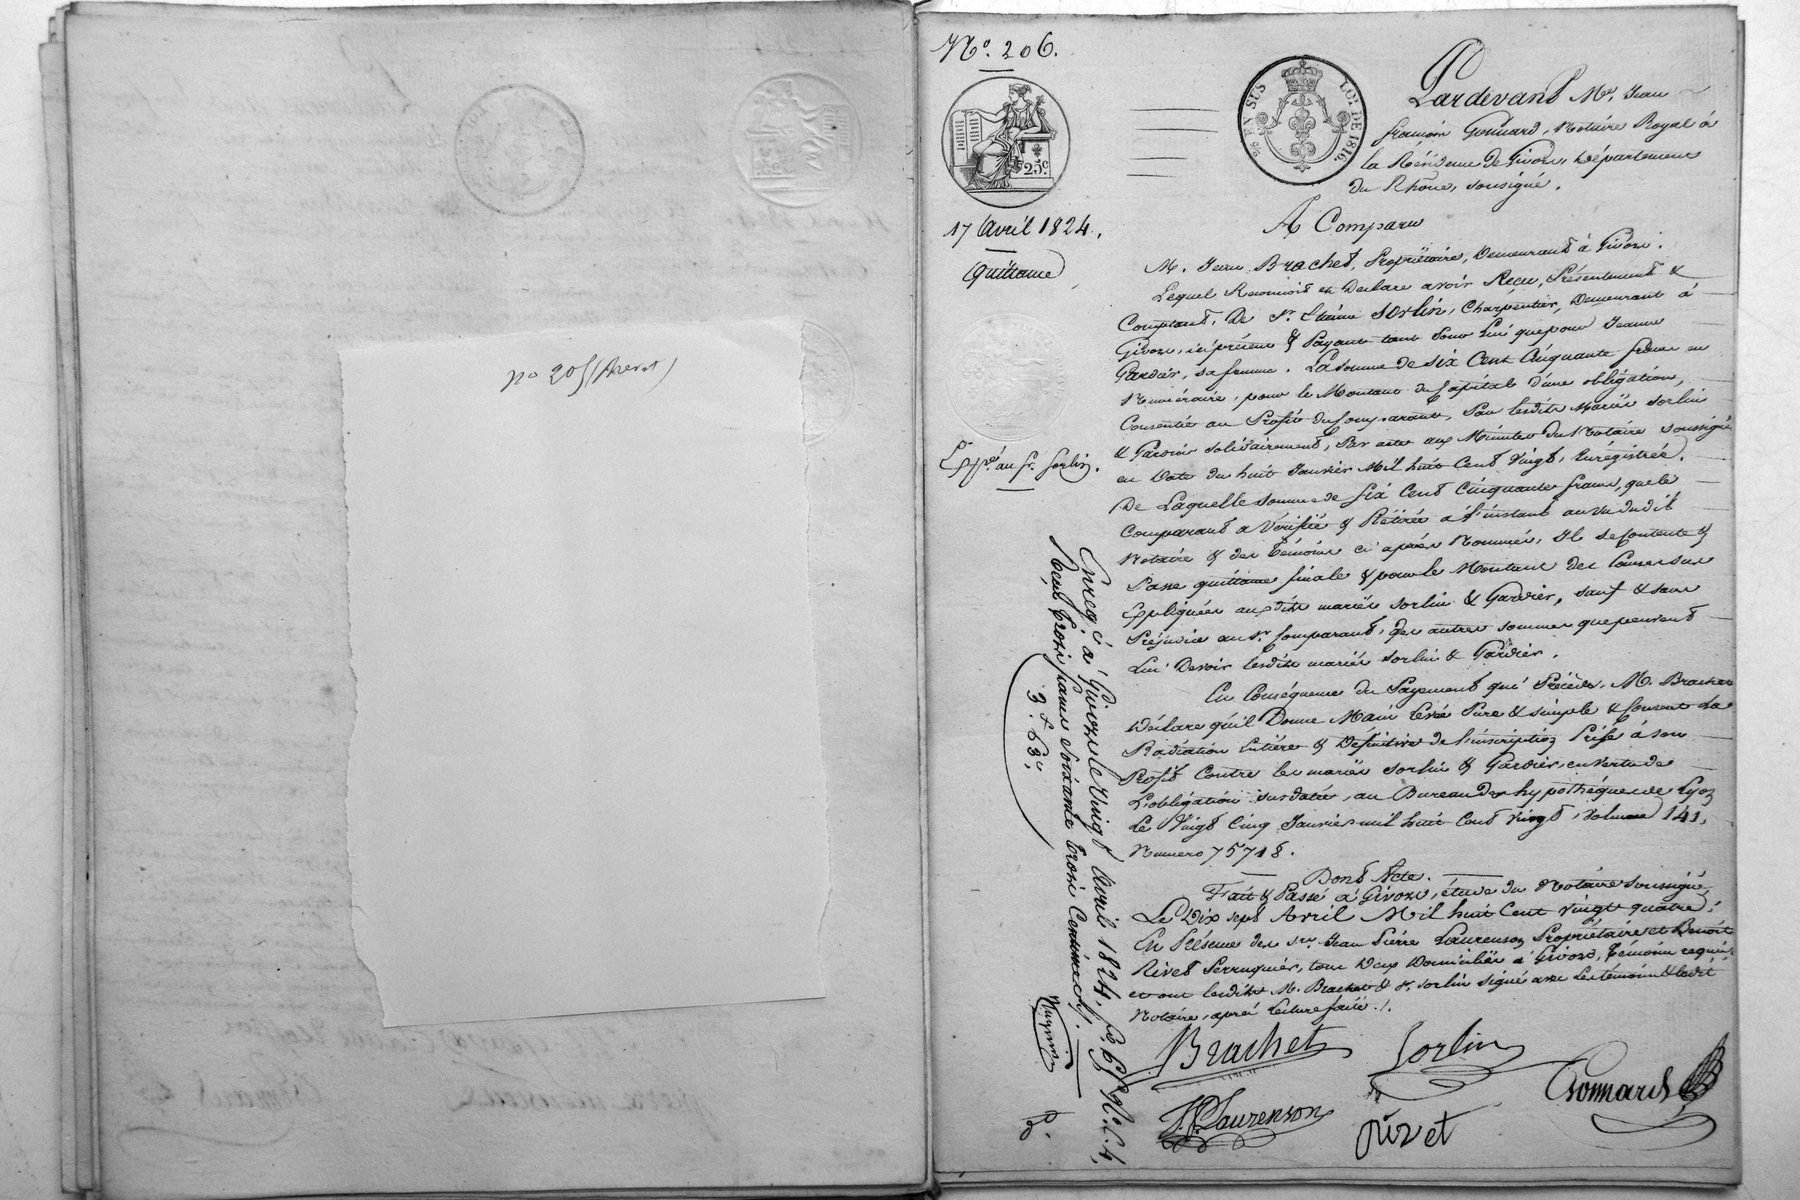 no 205 (brevet)
No. 206.
EN SUS LOI DE 1816.
25c
17 Avril 1824.
Quittance
Expé. au Sr. Sorlin.
Pardevant Me. Jean
françois Gonnard, Notaire Royal à
la Résidence de Givors, Département
du Rhône, soussigné.
A Comparu
M. Jean Brachet, Propriétaire, Demeurant à Givors.
Lequel Reconnoit et Déclare avoir Reçu, Présentement &
Comptant, De Sr. Etienne Sorlin, Charpentier, Demeurant à
Givors, ici présent & Payant tant Pour Lui que pour Jeanne
Gardier, sa femme. La somme de six Cent Cinquante francs en
Numéraire, pour le Montant du Capital d'une obligation,
Consentie au Profit du Comparant, Par lesdits mariés Sorlin
& Gardier solidairement, Par acte aux Minutes du Notaire soussigné
en Date du huit Janvier Mil huit Cent Vingt, Enrégistrée.
De Laquelle somme de Six Cent Cinquante francs, que le
Comparant a Vérifiée & Rétirée à l'instant au vu dudit
Notaire & des Témoins ci après Nommés, Il se Contente &
Passe quittance finale & pour le Montant des Causes sus
Expliquées auxdits mariés Sorlin & Gardier, sauf & sans
Préjudice au Sr. Comparant, des autres sommes que peuvent
Lui Devoir lesdits mariés Sorlin & Gardier.
En Conséquence du Payement qui Précède, M. Brachet
Déclare qu'il Donne Main Levée Pure & simple & Consent La
Radiation Entière & Définitive de l'inscription Prise à son
Profit Contre les mariés Sorlin & Gardier, en vertu de
L'obligation susdatée, au Bureau des hypothéques de Lyon
Le Vingt Cinq Janvier mil huit Cent Vingt, Volume 141,
Numero 75718.
Dont Acte.
Fait & Passé à Givors, étude du Notaire soussigné,
Le Dix sept Avril Mil huit Cent vingt quatre;
En Présence des srs. Jean Pierre Laurenson Propriétaire et Benoit
Rivet Perruquier, tous Deux Domiciliés à Givors, témoins requis
et ont lesdits M. Brachet & Sr. Sorlin signé avec les témoins & ledit
Notaire, après Lecture faite./.
Brachet
Sorlin
Gonnard
J. P. Laurenson
rivet
Enreg. é à Givors le Vingt Avril 1824, fo. 65 Ro. C. 4,
Reçu trois francs soixante trois Centimes.
3f. 63c.